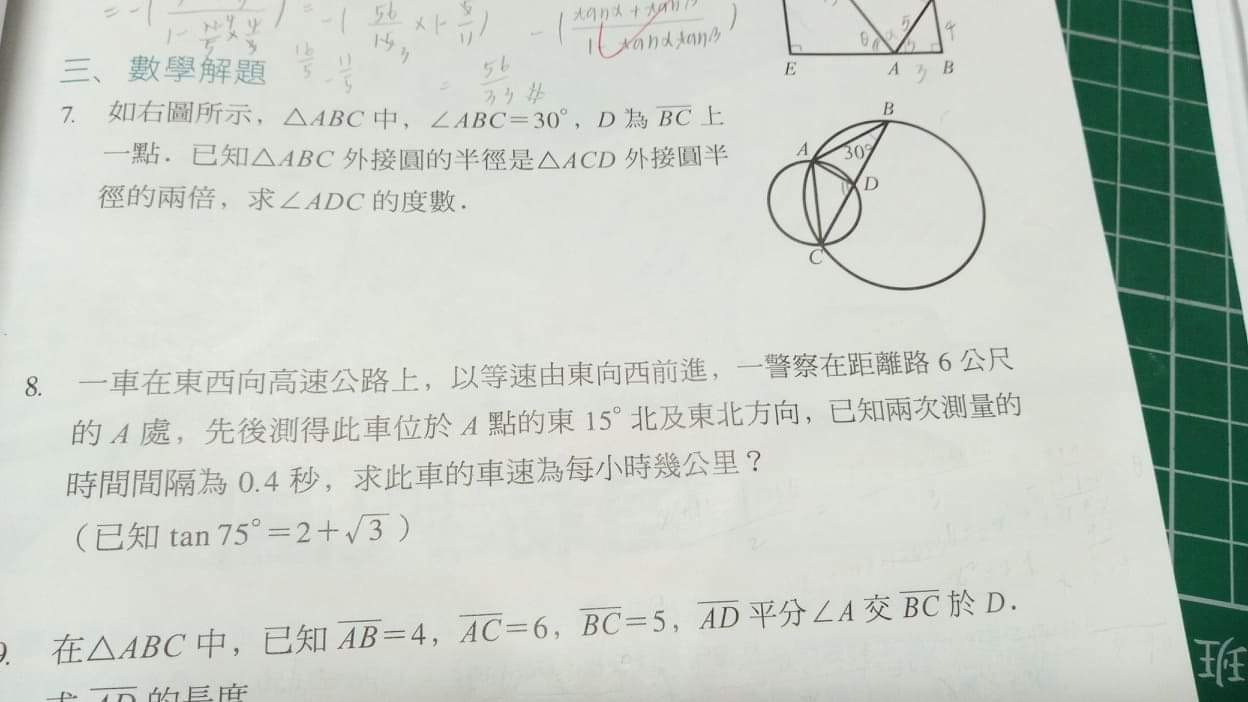 = -( ) = -( 56/15 × (- 5/11) - ( tanα + tanβ / 1 - tanα tanβ )
= 56/33 #
三、數學解題
E A B
7. 如右圖所示，△ABC 中，∠ABC＝30°，D 為 BC 上
一點．已知△ABC 外接圓的半徑是△ACD 外接圓半
徑的兩倍，求∠ADC 的度數．
B
A 30°
D
C
8. 一車在東西向高速公路上，以等速由東向西前進，一警察在距離路 6 公尺
的 A 處，先後測得此車位於 A 點的東 15° 北及東北方向，已知兩次測量的
時間間隔為 0.4 秒，求此車的車速為每小時幾公里？
（已知 tan 75°＝2＋√3 ）
9. 在△ABC 中，已知 AB＝4，AC＝6，BC＝5，AD 平分∠A 交 BC 於 D．
求 AD 的長度
班